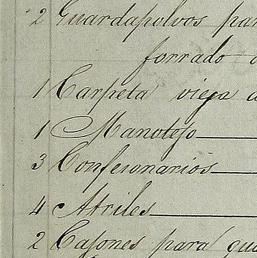 2 Guardapolvos par
forrado
1 Carpeta vieja
1 Manotejo
3 Confesionarios
4 Atriles
2 Cajones para gua